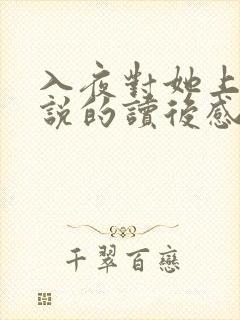 入夜對她上
說的讀後感
千翠百戀